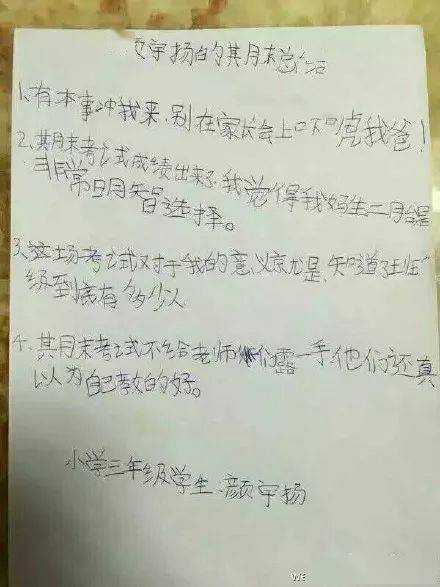 颜宇扬的其月末总结
1.有本事冲我来,别在家长会上口下口虎我爸!
2.其月末考试成绩出来了,我觉得我妈生二月台是
非常日月智选择。
3.这场考试对于我的意义京尤是,知道了班
级到底有多少人
4.其月末考试不给老师们露一手,他们还真
以为自己教的好。
小学三年级学生.颜宇扬
WE